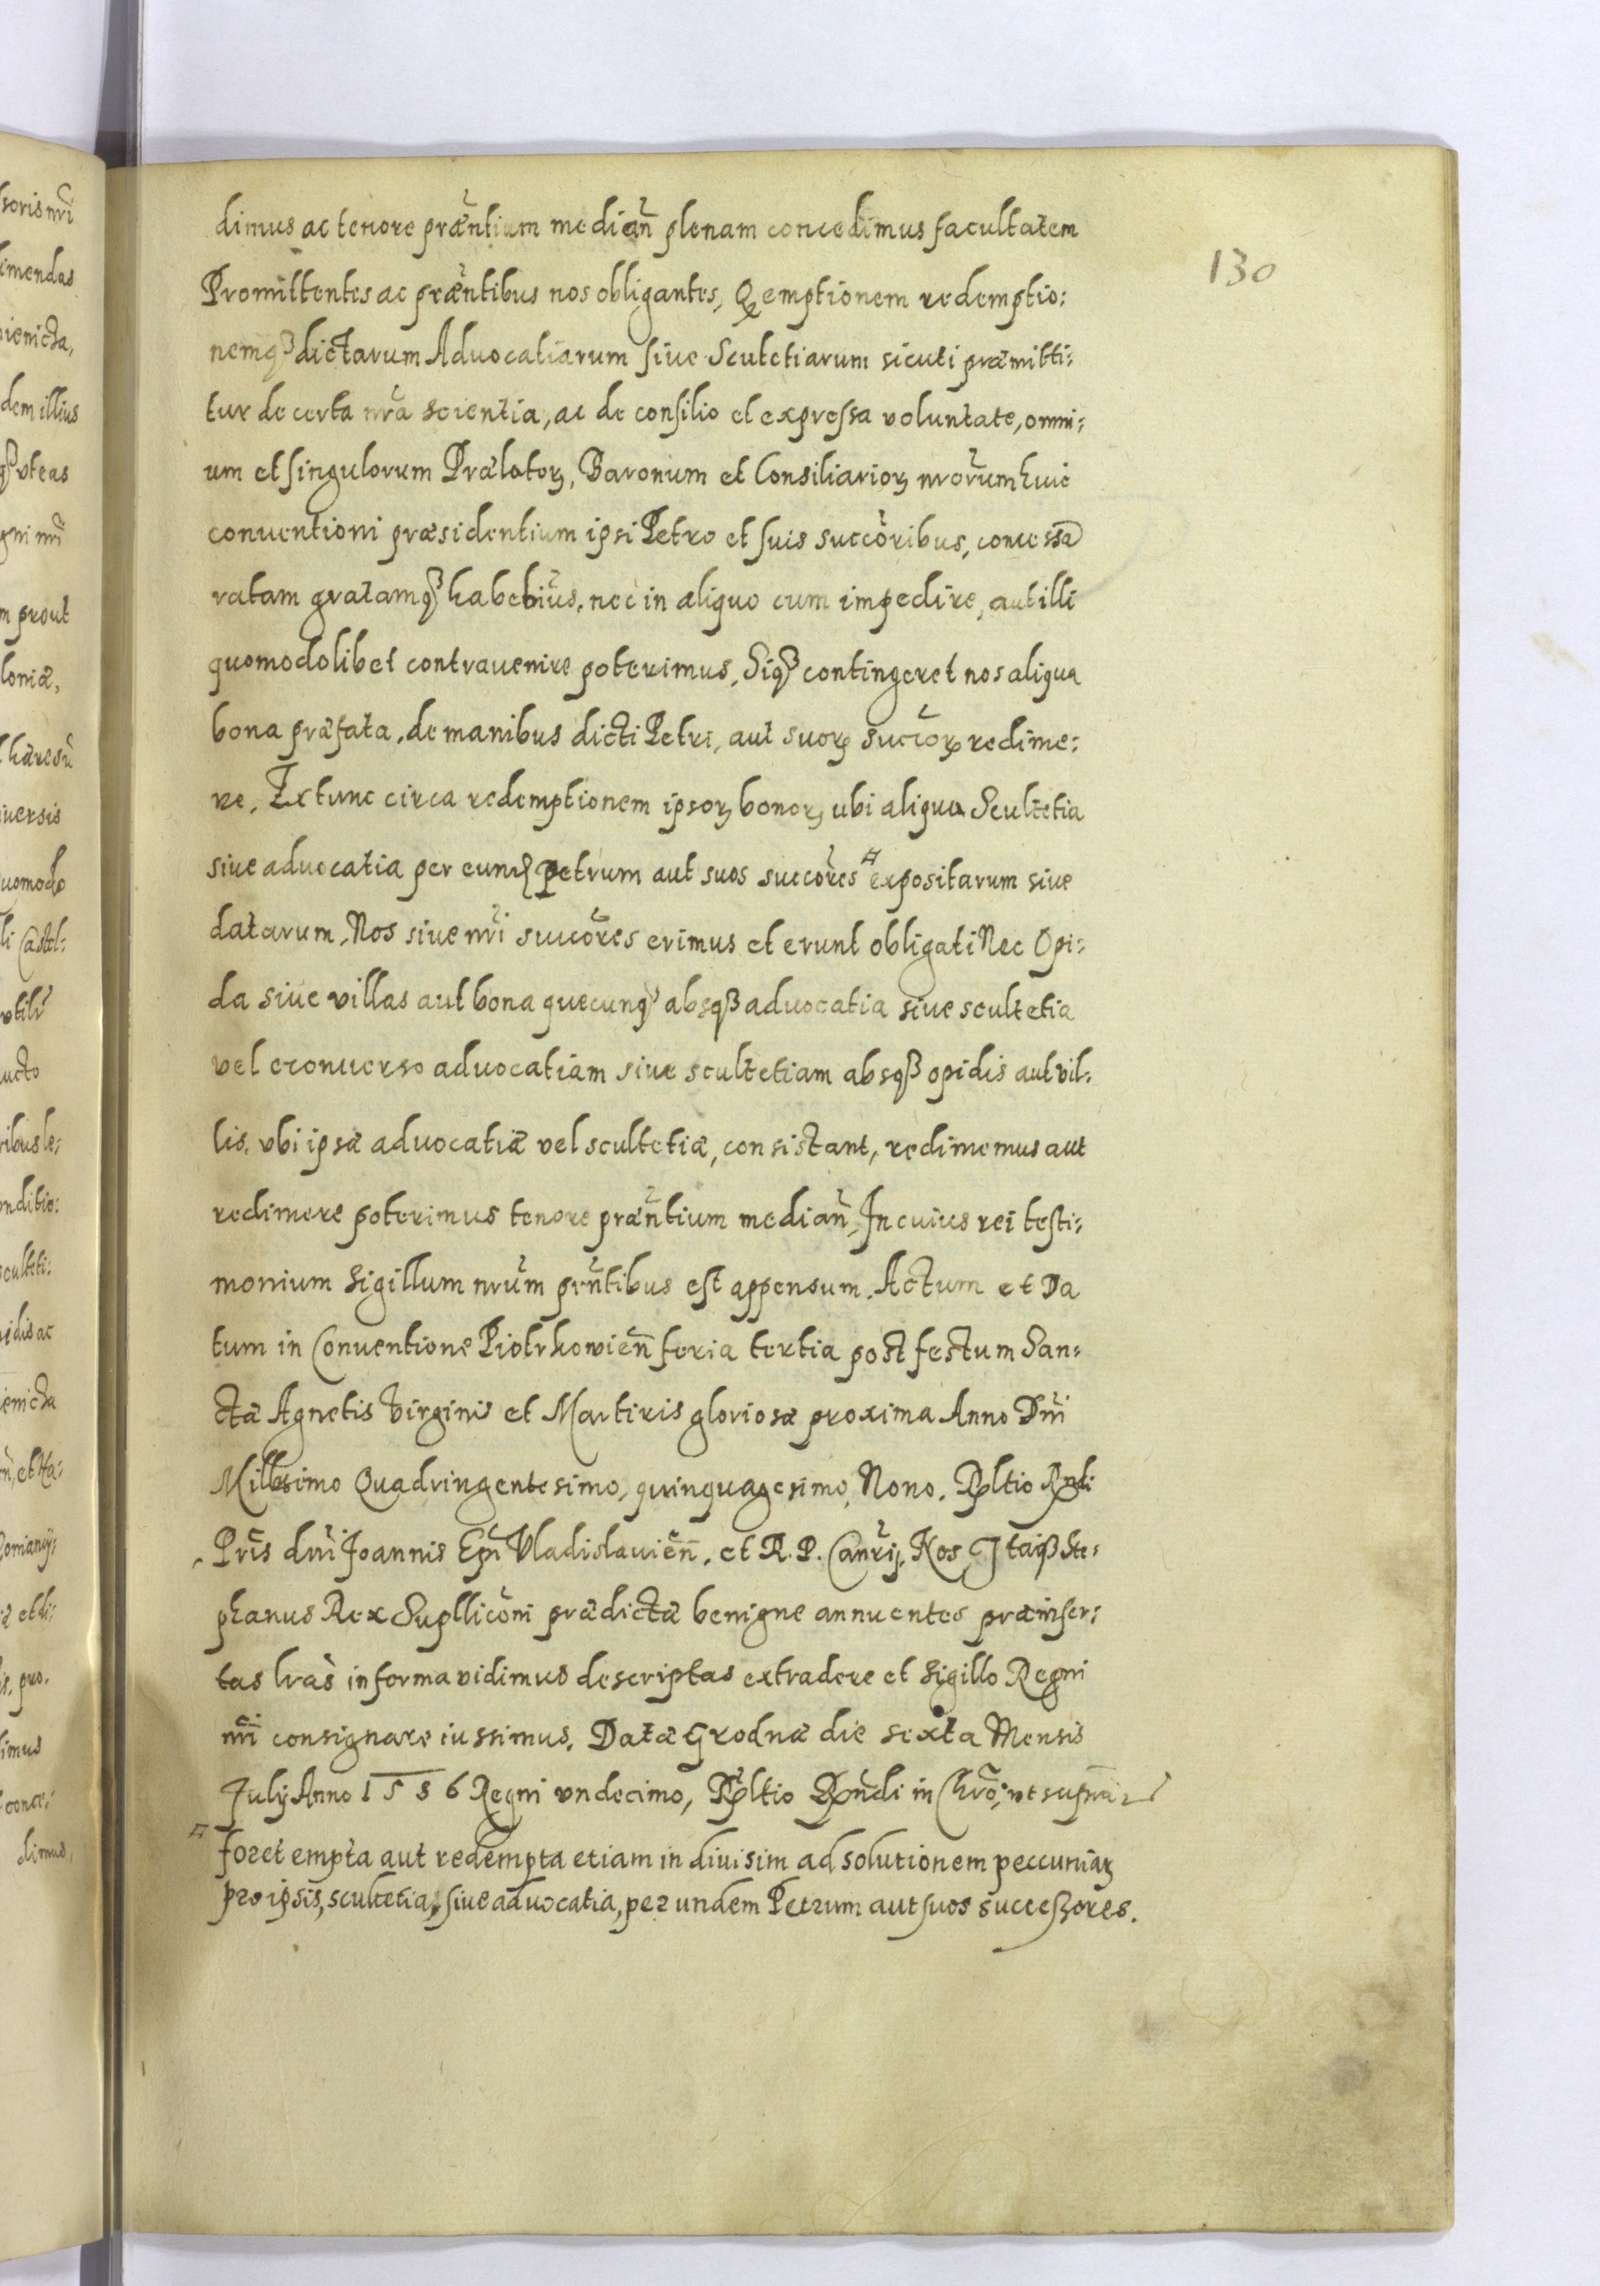 130
dimus ac tenore præntium median̄ plenam concedimus facultatem
Promittentes ac præntibus nos obligantes, Q emptionem redemptio:
nemqꝫ dictarum Aduocatiarum siue Scultetiarum sicuti præmitti:
tur de certa nra scientia, ac de consilio et expressa voluntate, omni:
um et singulorum Prælatoꝝ, Baronum et Consiliarioꝝ nrorum huic
conuentioni præsidentium ipsi Petro et suis succoribus, concessa
ratam gratamqꝫ habebius, nec in aliquo eum impedire, aut illi
quomodolibet contrauenire poterimus, Siqꝫ contingeret nos aliqua
bona præfata, de manibus dicti Petri, aut suoꝝ succoꝝ redime:
re, Extunc circa redemptionem ipsoꝝ bonoꝝ ubi aliqua Scultetia
siue aduocatia per eund petrum aut suos succores ⌗ expositarum siue
datarum, Nos siue nri succores erimus et erunt obligati Nec Opi:
da siue villas aut bona quecunqꝫ absqꝫ aduocatia siue scultetia
vel econuerso aduocatiam siue scultetiam absqꝫ opidis aut vil:
lis, vbi ipsæ aduocatiæ vel scultetiæ, consistant, redimemus aut
redimere poterimus tenore præntium median̄, In cuius rei testi:
monium Sigillum nrum prntibus est appensum. Actum et Da
tum in Conuentione Piotrkowien̄ feria tertia post festum San:
ctæ Agnetis Virginis et Martiris gloriosæ proxima Anno Dni
Millesimo Quadringentesimo, quinquagesimo, Nono. Rltio Rndi
Pris dni Joannis Epi Vladislauien̄, et R. P. Canrij, Nos Itaqꝫ Ste:
phanus Rex Suppliconi prædictæ benigne annuentes præinser:
tas lras in forma vidimus descriptas extradere et Sigillo Regni
nri consignare iussimus. Datæ Grodnæ die sexta Mensis
Julij Anno 1586 Regni vndecimo, Rltio Rndi in Chro, vt supra
⌗ foret empta aut redempta etiam in diuisim ad solutionem peccuniaꝝ
pro ipsis, scultetia, siue aduocatia, per undem Petrum aut suos successores.